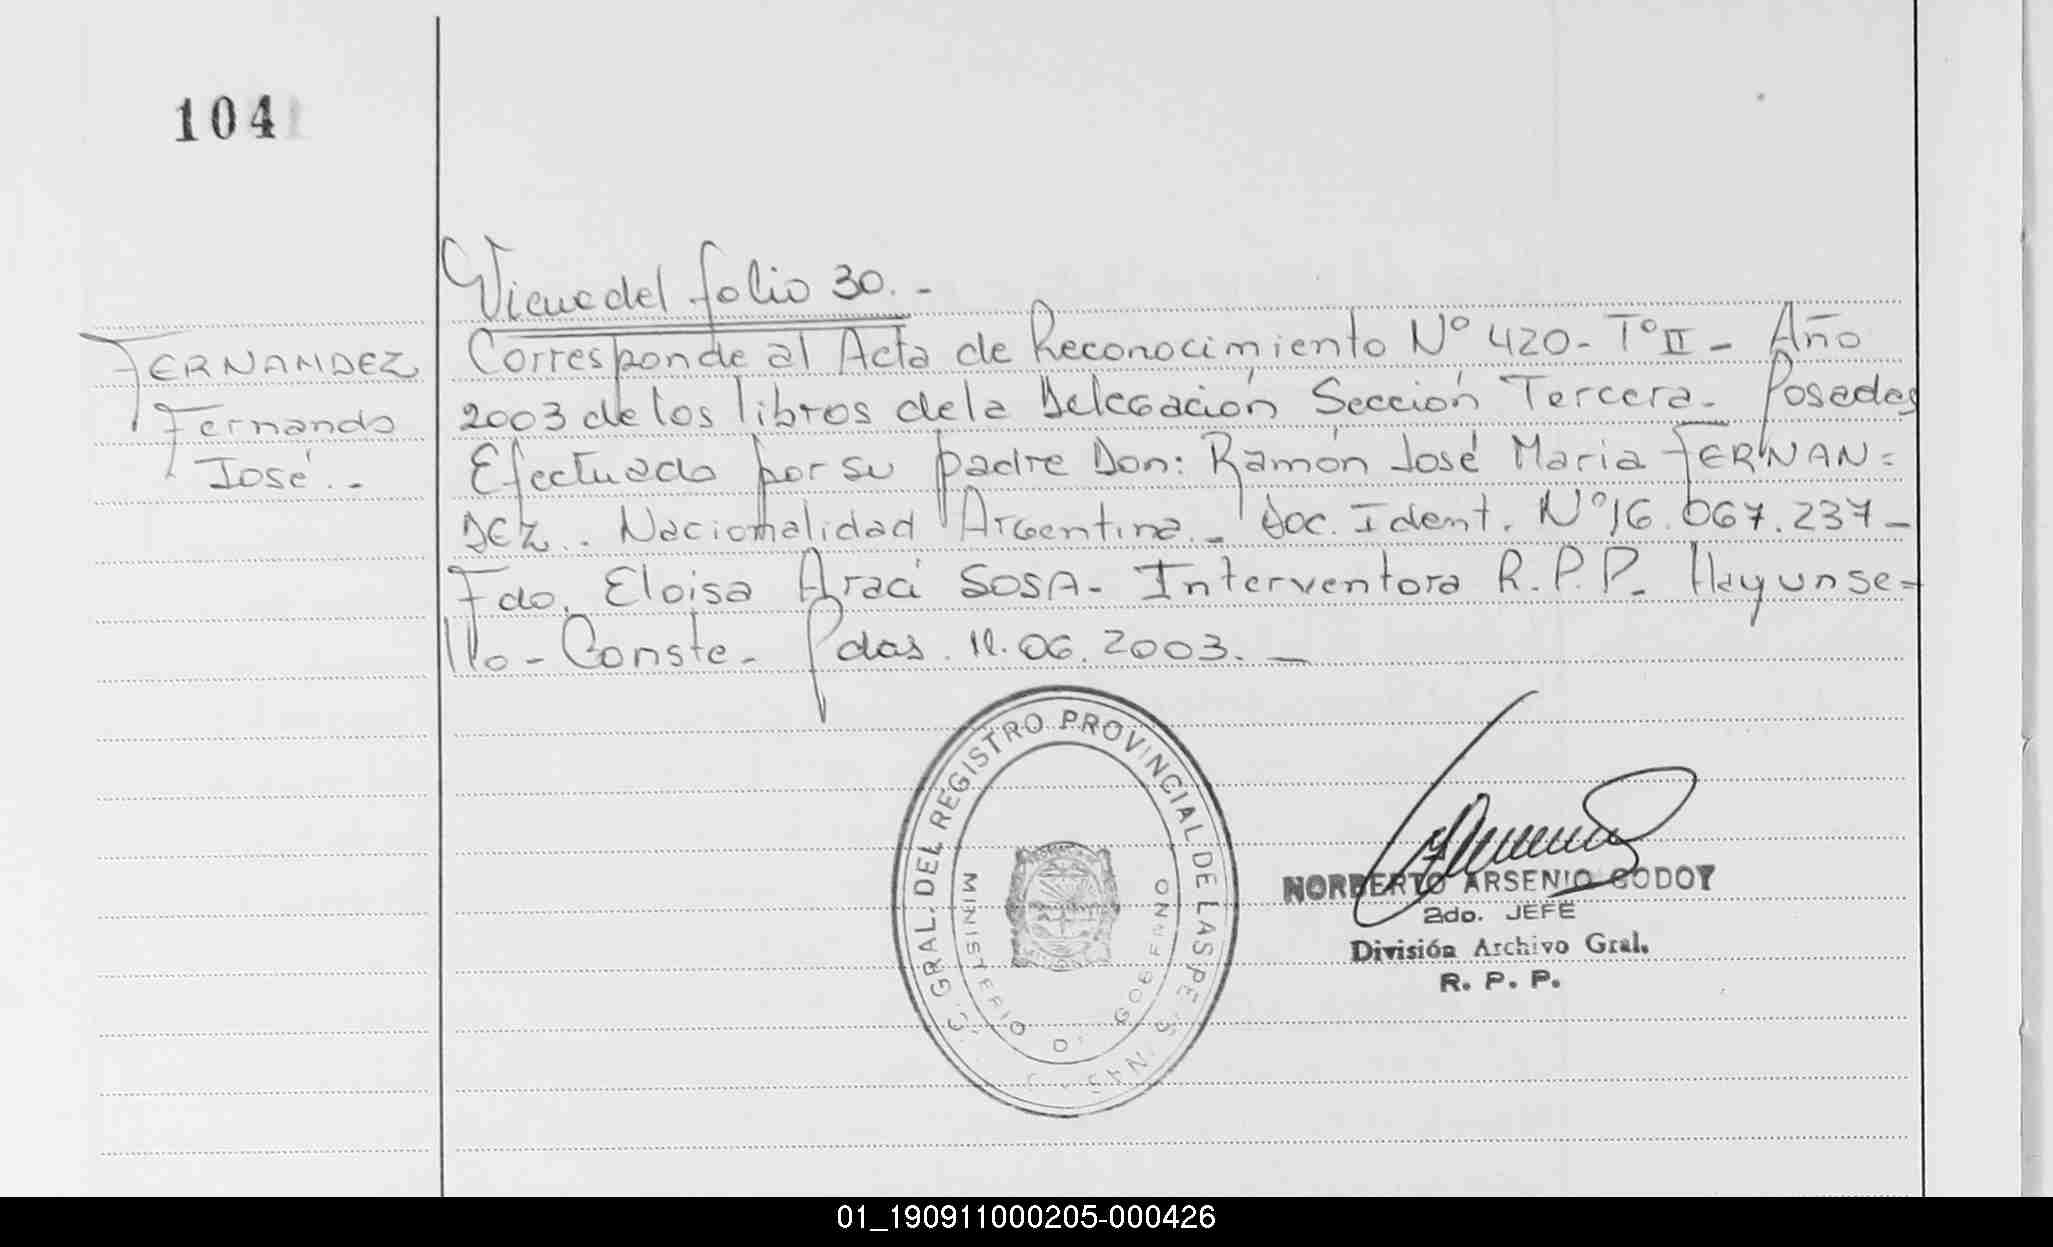 104
Viene del folio 30.-
FERNANDEZ
Fernando
José.-
Corresponde al Acta de Reconocimiento Nº 420- Tº II - Año
2003 de los libros de la Delegación Sección Tercera- Posadas
Efectuado por su padre Don: Ramón José Maria FERNAN=
DEZ.. Nacionalidad Argentina.- Doc. Ident. Nº 16.067.237-
Fdo. Eloisa Araci SOSA- Interventora R.P.P. Hay un se=
llo- Conste- Pdas. 12.06.2003.-
GRAL. DEL REGISTRO PROVINCIAL DE LAS PE S NAS
MINISTERIO D GOBERNO
NORBERTO ARSENIO GODOY
2do. JEFE
División Archivo Gral.
R. P. P.
01_190911000205-000426